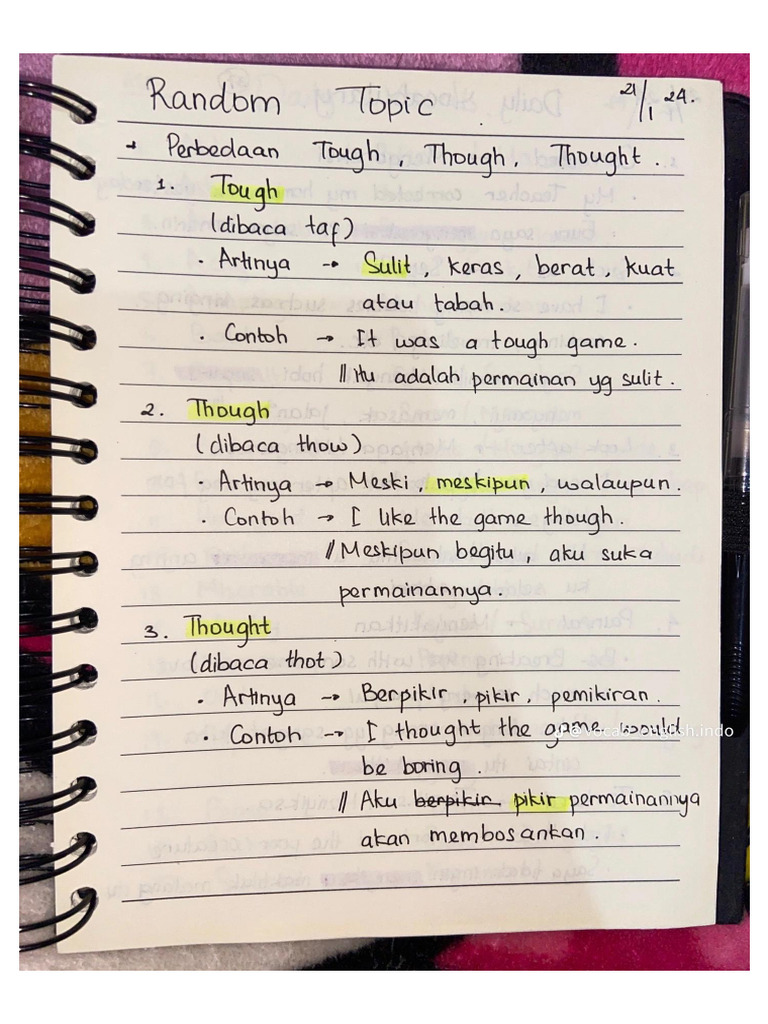 Random Topic
21/1 24.
→ Perbedaan Tough, Though, Thought.
1. Tough
(dibaca taf)
• Artinya → Sulit, keras, berat, kuat
atau tabah.
• Contoh → It was a tough game.
// Itu adalah permainan yg sulit.
2. Though
(dibaca thow)
• Artinya → Meski, meskipun, walaupun.
• Contoh → I like the game though.
// Meskipun begitu, aku suka
permainannya.
3. Thought
(dibaca thot)
• Artinya → Berpikir, pikir, pemikiran.
• Contoh → I thought the game would
be boring.
// Aku berpikir pikir permainannya
akan membosankan.